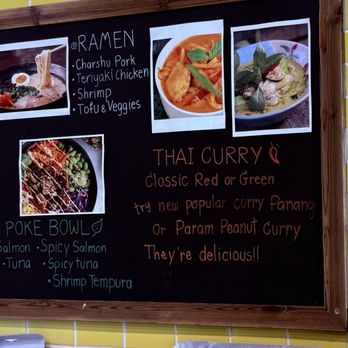 @RAMEN
• Charshu Pork
• Teriyaki Chicken
• Shrimp
• Tofu & Veggies
THAI CURRY
Classic Red or Green
try new popular curry Panang
Or Param Peanut Curry
They're delicious!!
POKE BOWL
Salmon • Spicy Salmon
• Tuna • Spicy tuna
• Shrimp Tempura